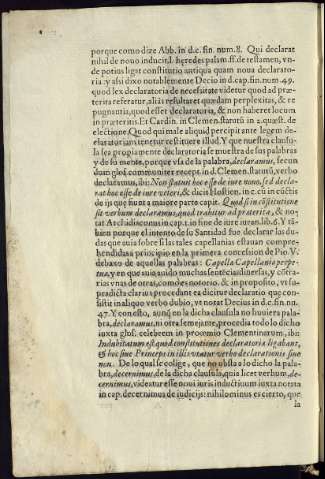 porque como dize Abb. in d.c. fin. num. 8. Qui declarat
nihil de nouo inducit. l. heredes palam ff. de testamen, vn-
de potius ligat constitutio antiqua quam noua declarato-
ria. y assi dixo notablemente Decio in d. cap. fin. num. 49.
quod lex declaratoria de necessitate videtur quod ad præ-
terita referatur, aliàs resultaret quædam perplexitas, & re
pugnantia, quod esset declaratoria, & non haberet locum
in præteritis. Et Cardin. in Clemen. statutũ in 2. quæst. de
electione. Quod qui male aliquid percipit ante legem de-
claratoriam tenetur restituere illud. Y que nuestra clausu-
la sea propiamente declaratoria se muestra de sus palabras
y de su mente, porque vsa de la palabra, declaramus, secun
dum glos. communiter recept. in d. Clemen. statutũ, verbo
declaramus, ibi: Non statuit hoc esse de iure nouo, sed decla-
rat hoc esse de iure veteri, & dicit Hostien. in c. cũ in cũctis
de ijs que fiunt a maiore parte capit. Quod si in cõstitutione
sit verbum declaramus, quod trahitur ad præterita, & no-
tat Archidiaconus in cap. 1. in fine de iure iuran. lib. 6. Y tã-
bien porque el intento de su Santidad fue declarar las du-
das que auia sobre si las tales capellanias estauan compre-
hendidas a principio en la primera concession de Pio V.
debaxo de aquellas palabras: Capella Capellania perpe-
tua, y en que auia auido muchas sentẽcias diuersas, y cõtra-
rias vnas de otras, como es notorio. & in proposito, vt su-
pra dicta clarius procedant ea dicitur declaratio que con-
sistit in aliquo verbo dubio, vt notat Decius in d.c. fin. nu.
47. Y con esto, aunq̃ en la dicha clausula no huuiera pala-
bra, declaramus, ni otra semejante, procedia todo lo dicho
iuxta glos. celebrem in proœmio Clementinarum, ibi:
Indubitatum est quod constitutiones declaratoria ligabant,
& hoc siue Princeps in illis vtatur verbo declarationis siue
non. De lo qual se colige, que no obsta a lo dicho la pala-
bra, decernimus, de la dicha clausula, quia licet verbum, de-
cernimus, videatur esse noui iuris inductiuum iuxta notata
in cap. decernimus de iudicijs: nihilominus es cierto, que
la